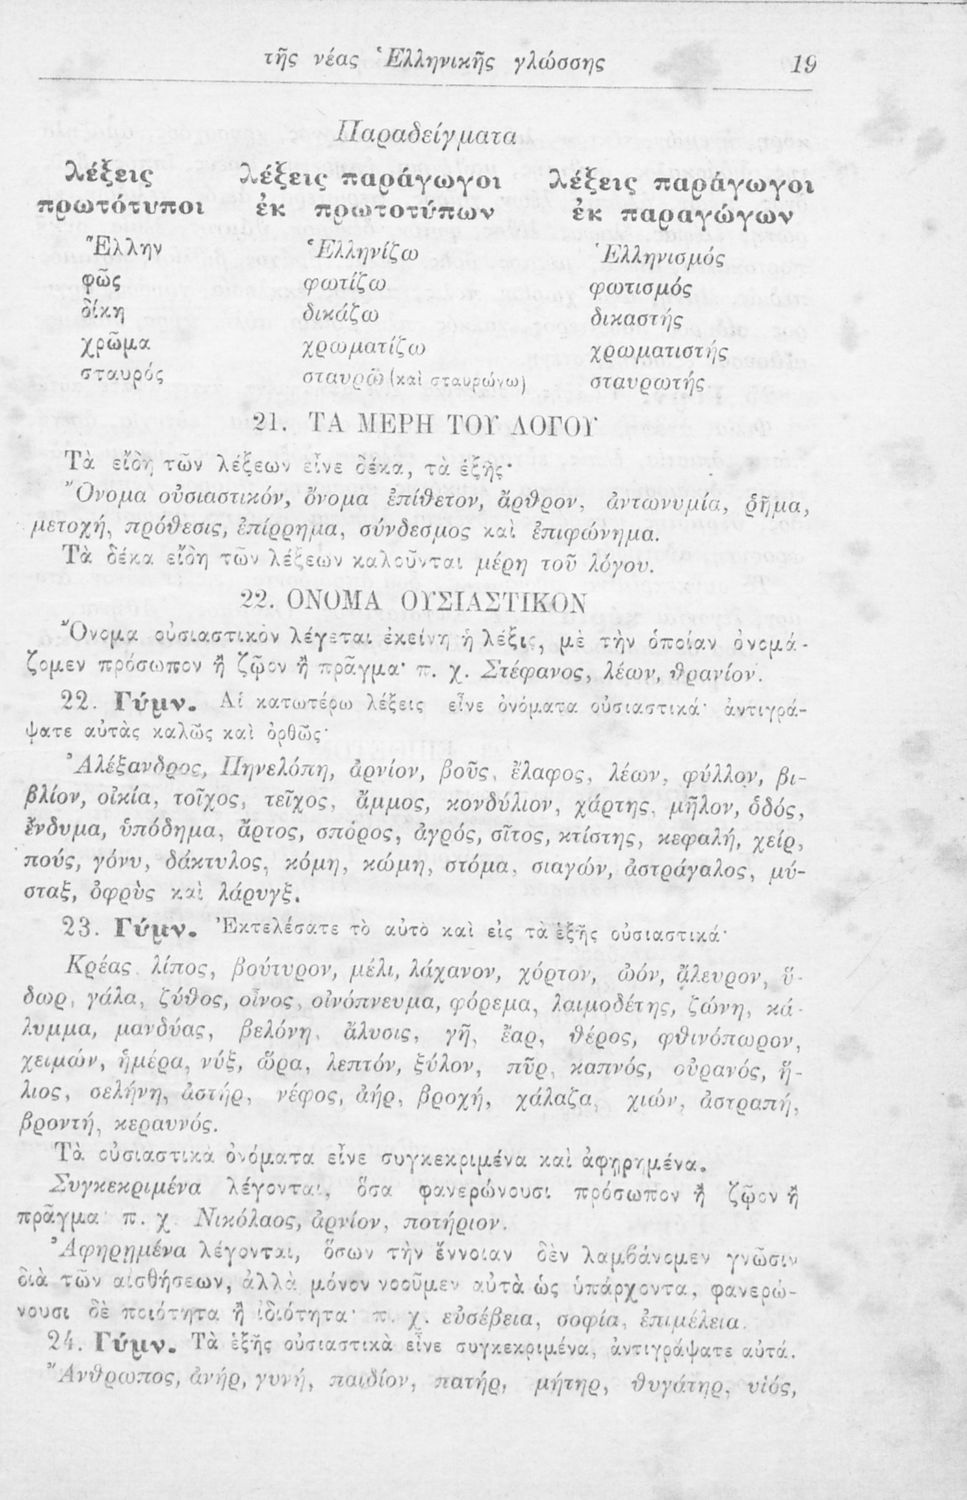 τῆς νέας Ἑλληνικῆς γλώσσης 19
Παραδείγματα
λέξεις πρωτότυποι λέξεις παράγωγοι ἐκ πρωτοτύπων λέξεις παράγωγοι ἐκ παραγώγων
Ἕλλην Ἑλληνίζω Ἑλληνισμός
φῶς φωτίζω φωτισμός
δίκη δικάζω δικαστής
χρῶμα χρωματίζω χρωματιστής
σταυρός σταυρῶ (καὶ σταυρώνω) σταυρωτής
21. ΤΑ ΜΕΡΗ ΤΟΥ ΛΟΓΟΥ
Τὰ εἴδη τῶν λέξεων εἶνε δέκα, τὰ ἑξῆς·
Ὄνομα οὐσιαστικόν, ὄνομα ἐπίθετον, ἄρθρον, ἀντωνυμία, ῥῆμα,
μετοχή, πρόθεσις, ἐπίρρημα, σύνδεσμος καὶ ἐπιφώνημα.
Τὰ δέκα εἴδη τῶν λέξεων καλοῦνται μέρη τοῦ λόγου.
22. ΟΝΟΜΑ ΟΥΣΙΑΣΤΙΚΟΝ
Ὄνομα οὐσιαστικὸν λέγεται ἐκείνη ἡ λέξις, μὲ τὴν ὁποίαν ὀνομά-
ζομεν πρόσωπον ἢ ζῷον ἢ πρᾶγμα· π. χ. Στέφανος, λέων, θρανίον.
22. Γύμν. Αἱ κατωτέρω λέξεις εἶνε ὀνόματα οὐσιαστικά· ἀντιγρά-
ψατε αὐτὰς καλῶς καὶ ὀρθῶς·
Ἀλέξανδρος, Πηνελόπη, ἀρνίον, βοῦς, ἔλαφος, λέων, φύλλον, βι-
βλίον, οἰκία, τοῖχος, τεῖχος, ἄμμος, κονδύλιον, χάρτης, μῆλον, ὁδός,
ἔνδυμα, ὑπόδημα, ἄρτος, σπόρος, ἀγρός, σῖτος, κτίστης, κεφαλή, χείρ,
πούς, γόνυ, δάκτυλος, κόμη, κώμη, στόμα, σιαγών, ἀστράγαλος, μύ-
σταξ, ὀφρὺς καὶ λάρυγξ.
23. Γύμν. Ἐκτελέσατε τὸ αὐτὸ καὶ εἰς τὰ ἑξῆς οὐσιαστικά·
Κρέας, λίπος, βούτυρον, μέλι, λάχανον, χόρτον, ὠόν, ἄλευρον, ὕ-
δωρ, γάλα, ζύθος, οἶνος, οἰνόπνευμα, φόρεμα, λαιμοδέτης, ζώνη, κά-
λυμμα, μανδύας, βελόνη, ἄλυσις, γῆ, ἔαρ, θέρος, φθινόπωρον,
χειμών, ἡμέρα, νύξ, ὥρα, λεπτόν, ξύλον, πῦρ, καπνός, οὐρανός, ἥ-
λιος, σελήνη, ἀστήρ, νέφος, ἀήρ, βροχή, χάλαζα, χιών, ἀστραπή,
βροντή, κεραυνός.
Τὰ οὐσιαστικὰ ὀνόματα εἶνε συγκεκριμένα καὶ ἀφῃρημένα.
Συγκεκριμένα λέγονται, ὅσα φανερώνουσι πρόσωπον ἢ ζῷον ἢ
πρᾶγμα· π. χ. Νικόλαος, ἀρνίον, ποτήριον.
Ἀφηρημένα λέγονται, ὅσων τὴν ἔννοιαν δὲν λαμβάνομεν γνῶσιν
διὰ τῶν αἰσθήσεων, ἀλλὰ μόνον νοοῦμεν αὐτὰ ὡς ὑπάρχοντα, φανερώ-
νουσι δὲ ποιότητα ἢ ἰδιότητα· π. χ. εὐσέβεια, σοφία, ἐπιμέλεια.
24. Γύμν. Τὰ ἑξῆς οὐσιαστικὰ εἶνε συγκεκριμένα, ἀντιγράψατε αὐτά.
Ἄνθρωπος, ἀνήρ, γυνή, παιδίον, πατήρ, μήτηρ, θυγάτηρ, υἱός,